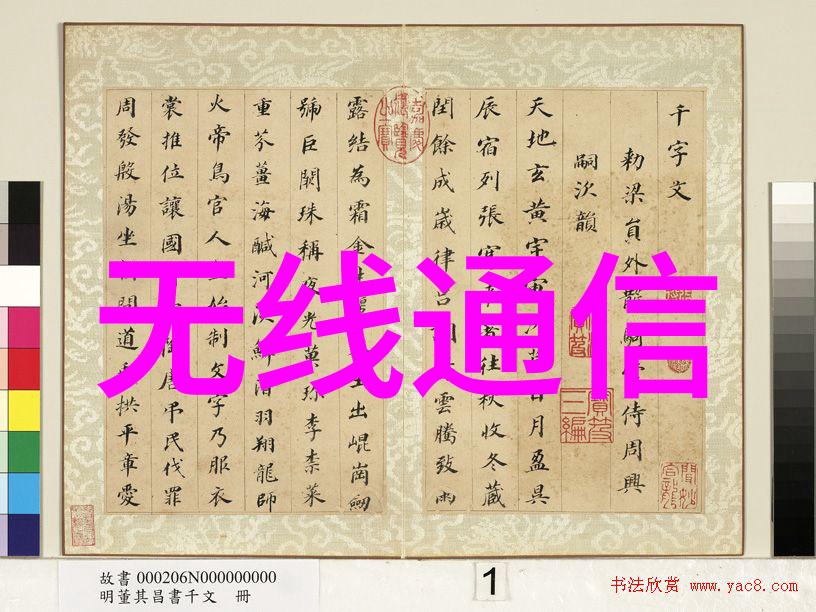 千字文
勑梁員外散騎侍周興
嗣次韻
天地玄黃宇日月盈昃
辰宿列張往秋收冬藏
閏餘成歲律呂雲騰致雨
露結為霜金出崐崗劒
號巨闕珠稱夜光菓珍李柰菜
重芥薑海鹹河淡鱗潛羽翔龍師
火帝鳥官人始制文字乃服衣
裳推位讓國陶唐弔民伐罪
周發殷湯坐問道拱平章愛
嘉慶御覽之寶
三編
无线通信
故書 000206N000000000
明董其昌書千文 冊
1
书法欣赏 www.yac8.com